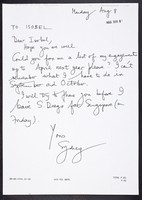 Monday Aug 8
TO ISOBEL
Dear Isobel,
Hope you're well.
Could you fax me a list of my engagements
up to April next year please? I can't
remember what I have to do in
September and October.
I will try to phone you before I
leave S. Diego for Singapore (on
Friday).
Yours
Sydney